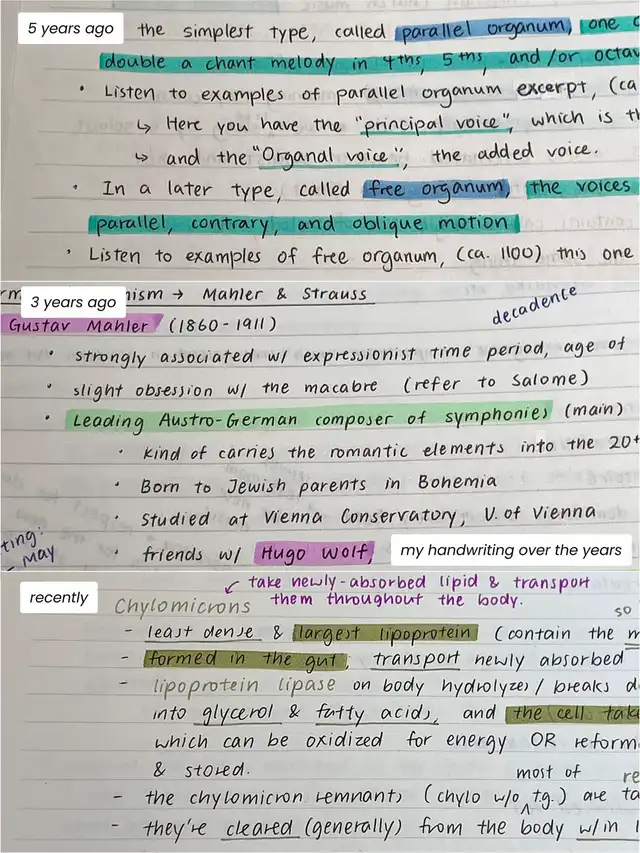 5 years ago
the simplest type, called parallel organum, one
double a chant melody in 4ths, 5ths, and/or octav
• Listen to examples of parallel organum excerpt, (ca
↳ Here you have the "principal voice", which is th
↳ and the "Organal voice", the added voice.
• In a later type, called free organum, the voices
parallel, contrary, and oblique motion
• Listen to examples of free organum, (ca. 1100) this one
3 years ago
nism → Mahler & Strauss
decadence
Gustav Mahler (1860-1911)
• strongly associated w/ expressionist time period, age of
• slight obsession w/ the macabre (refer to Salome)
• Leading Austro-German composer of symphonies (main)
• kind of carries the romantic elements into the 20t
• Born to Jewish parents in Bohemia
• Studied at Vienna Conservatory, U. of Vienna
ting:
May
• friends w/ Hugo Wolf,
my handwriting over the years
recently
take newly-absorbed lipid & transport
them throughout the body.
Chylomicrons
so
- least dense & largest lipoprotein (contain the m
- formed in the gut, transport newly absorbed
- lipoprotein lipase on body hydrolyzes/breaks d
into glycerol & fatty acids, and the cell take
which can be oxidized for energy OR reform
& stored.
most of re
- the chylomicron remnants (chylo w/o tg.) are ta
- they're cleared (generally) from the body w/in